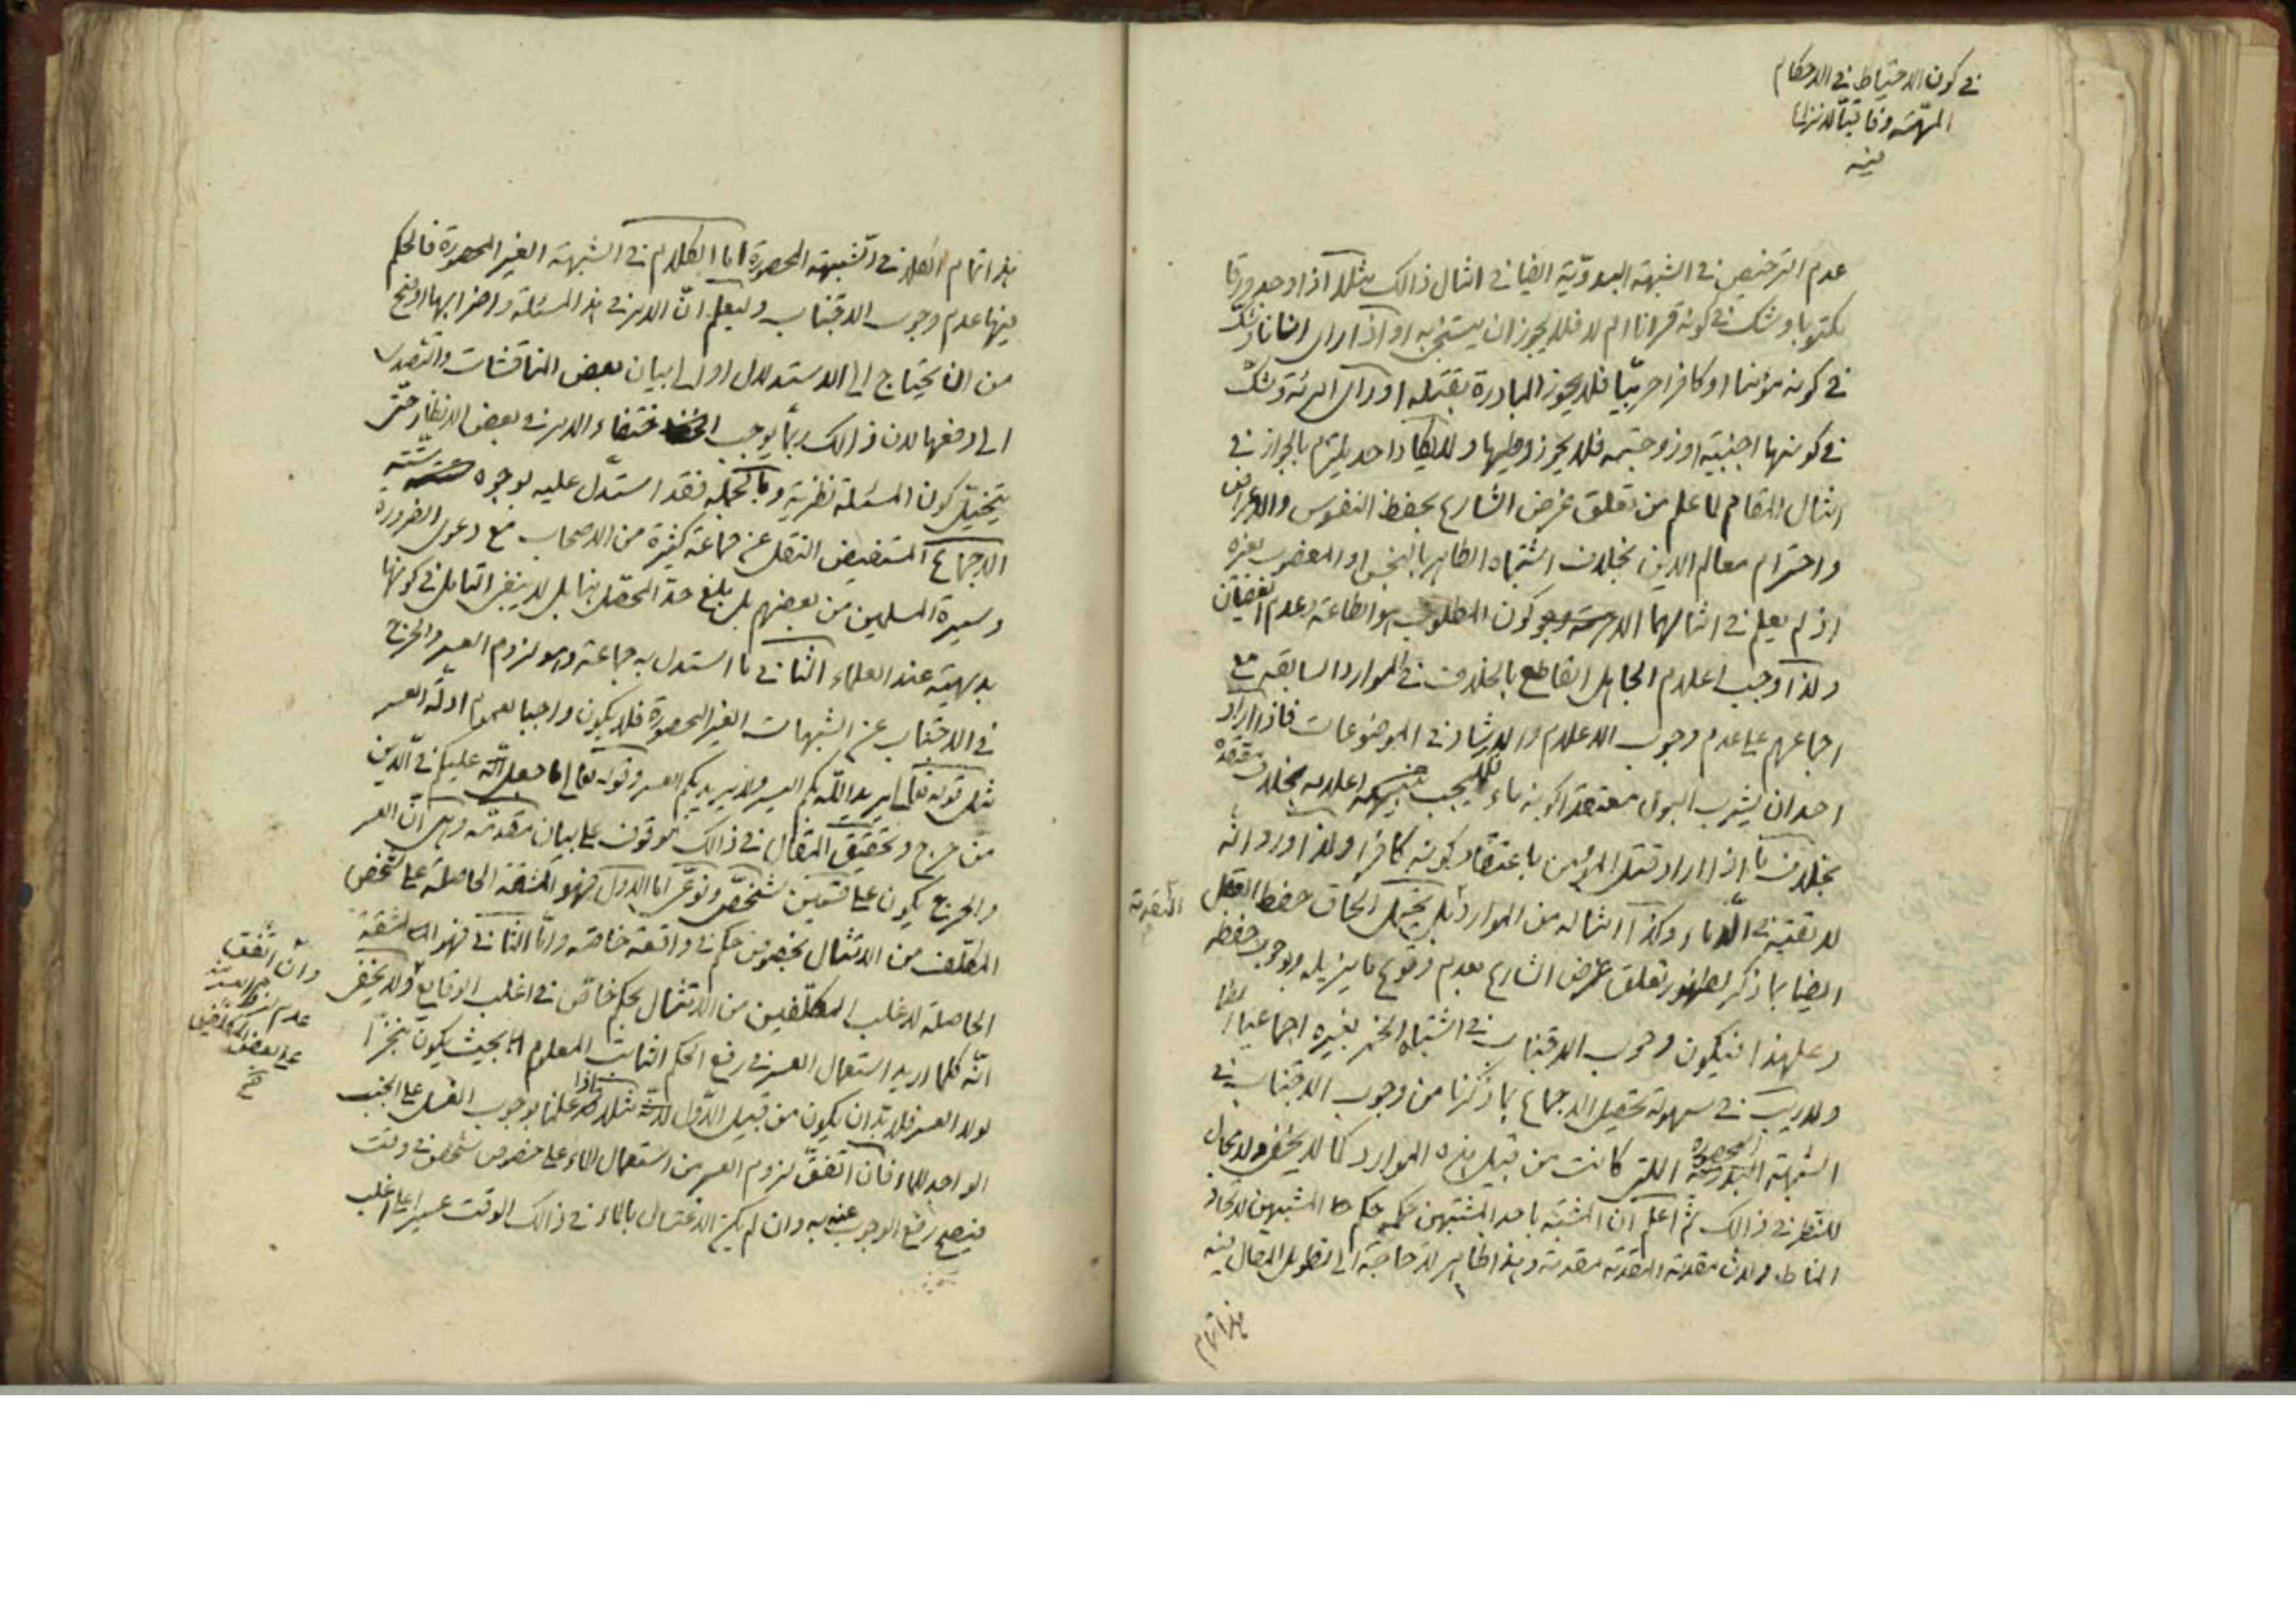 في كون الاحتياط في الاحكام
المهمّة وفاقيّا لا نزاع
فيه
عدم الترخيص في الشبهة البدويّة ايضا في امثال ذالك مثلا اذا وجد ورقا
مكتوبا وشك في كونه قرانا ام لا فلا يجوز ان يستنجي به او اذا راى انسانا وشكّ
في كونه مؤمنا او كافرا حربيّا فلا يجوز المبادرة بقتله او راى امرئة وشكّ
في كونها اجنبيّة او زوجته فلا يجوز وطيها ولا يكاد احد يلتزم بالجواز في
امثال المقام لما علم من تعلق غرض الشارع بحفظ النفوس والاعراض
واحترام معالم الدين بخلاف اشتباه الطاهر بالنجس او المغصوب بغيره
اذ لم يعلم في امثالهما الا كون المطلوب هو اطاعة وعدم العصيان
ولذا اوجب اعلام الجاهل القاطع بالخلاف في الموارد السابقه مع
اجماعهم على عدم وجوب الاعلام والارشاد في الموضوعات فاذا اراد
احد ان يشرب البول معتقدا كونه ماء فلا يجب اعلامه بخلاف معتقده
بخلاف ما اذا اراد قتل المؤمن باعتقاد كونه كافرا ولذا ورد انّه
لا تقيّة في الدّماء وكذا امثاله من الموارد بل يحتمل الحاق حفظ العقل
ايضا بما ذكر لظهور تعلق غرض الشارع بعدم وقوع ما يزيله وبوجوب حفظه
وعلى هذا فيكون وجوب الاجتناب في اشتباه الخمر بغيره اجماعيا
ولا ريب في سهولة تحصيل الاجماع بما ذكرنا من وجوب الاجتناب في
الشبهة المحصورة اللتي كانت من قبيل هذه الموارد كما لا يخفى ولا مجال
للنظر في ذالك ثم اعلم ان المشتبه باحد المشتبهين حكمه حكم المشتبهين لاتحاد
المناط ولان مقدمة المقدمة مقدمة وهذا ظاهر لا حاجة الى تطويل المقال فيه
هذا تمام
هذا تمام الكلام في الشبهة المحصورة اما الكلام في الشبهة الغير المحصورة فالحكم
فيها عدم وجوب الاجتناب وليعلم انّ الامر في هذه المسئلة واضرابها اوضح
من ان يحتاج الى الاستدلال او الى بيان بعض المناقشات والتصدي
الى دفعها لان ذالك ربما يوجب اختفاء الامر في بعض الانظار حتّى
يتخيّل كون المسئلة نظرية وبالجملة فقد استدّل عليه بوجوه ستّة
الاجماع المستفيض النقل عن جماعة كثيرة من الاصحاب مع دعوى الضرورة
وسيرة المسلمين من بعضهم بل بلغ حدّ المحصّل بنا بل لا ينبغي التامل في كونها
بديهيّة عند العلماء الثاني ما استدل به جماعة وهو لزوم العسر والحرج
في الاجتناب عن الشبهات الغير المحصورة فلا يكون واجبا لعموم ادلّة العسر
مثل قوله تعالى يريد اللّه بكم اليسر ولا يريد بكم العسر وقوله تعالى ما جعل اللّه عليكم في الدّين
من حرج وتحقيق المقال في ذالك موقوف على بيان مقدّمة وهي انّ العسر
والحرج يكون على قسمين شخصّي ونوعّي اما الاول فهو المشقة الحاصلة على شخص
المكلّف من الامتثال بخصوص حكم في واقعة خاصّة وامّا الثاني فهو المشقة
الحاصلة لاغلب المكلّفين من الامتثال بحكم خاصّ في اغلب الوقايع ولا يخفى
انّه كلما اريد استعمال العسر في رفع الحكم الثابت المعلوم بحيث يكون منجزّا
لولا العسر فلا بدّ ان يكون من قبيل الاوّل مثلا اذا علمنا بوجوب الغسل على الجنب
الواجد للماء فان اتفقّ لزوم العسر من استعمال الماء على خصوص شخص في وقت
فيصح رفع الوجوب عنه به وان لم يكن الاغتسال بالماء في ذالك الوقت عسيرا على اغلب
المقدمة
وان اتّفق
عدم لزوم العسر
على بعض المكلّفين